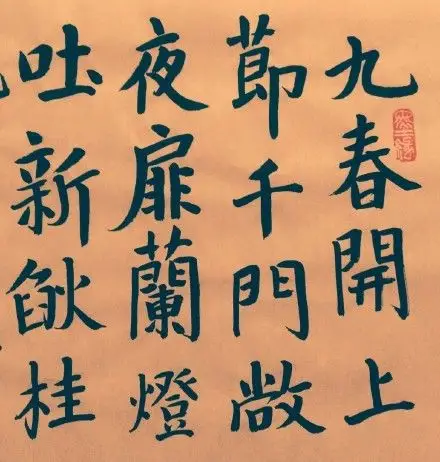 九春開上
莭千門敞
夜扉蘭燈
吐新燄桂